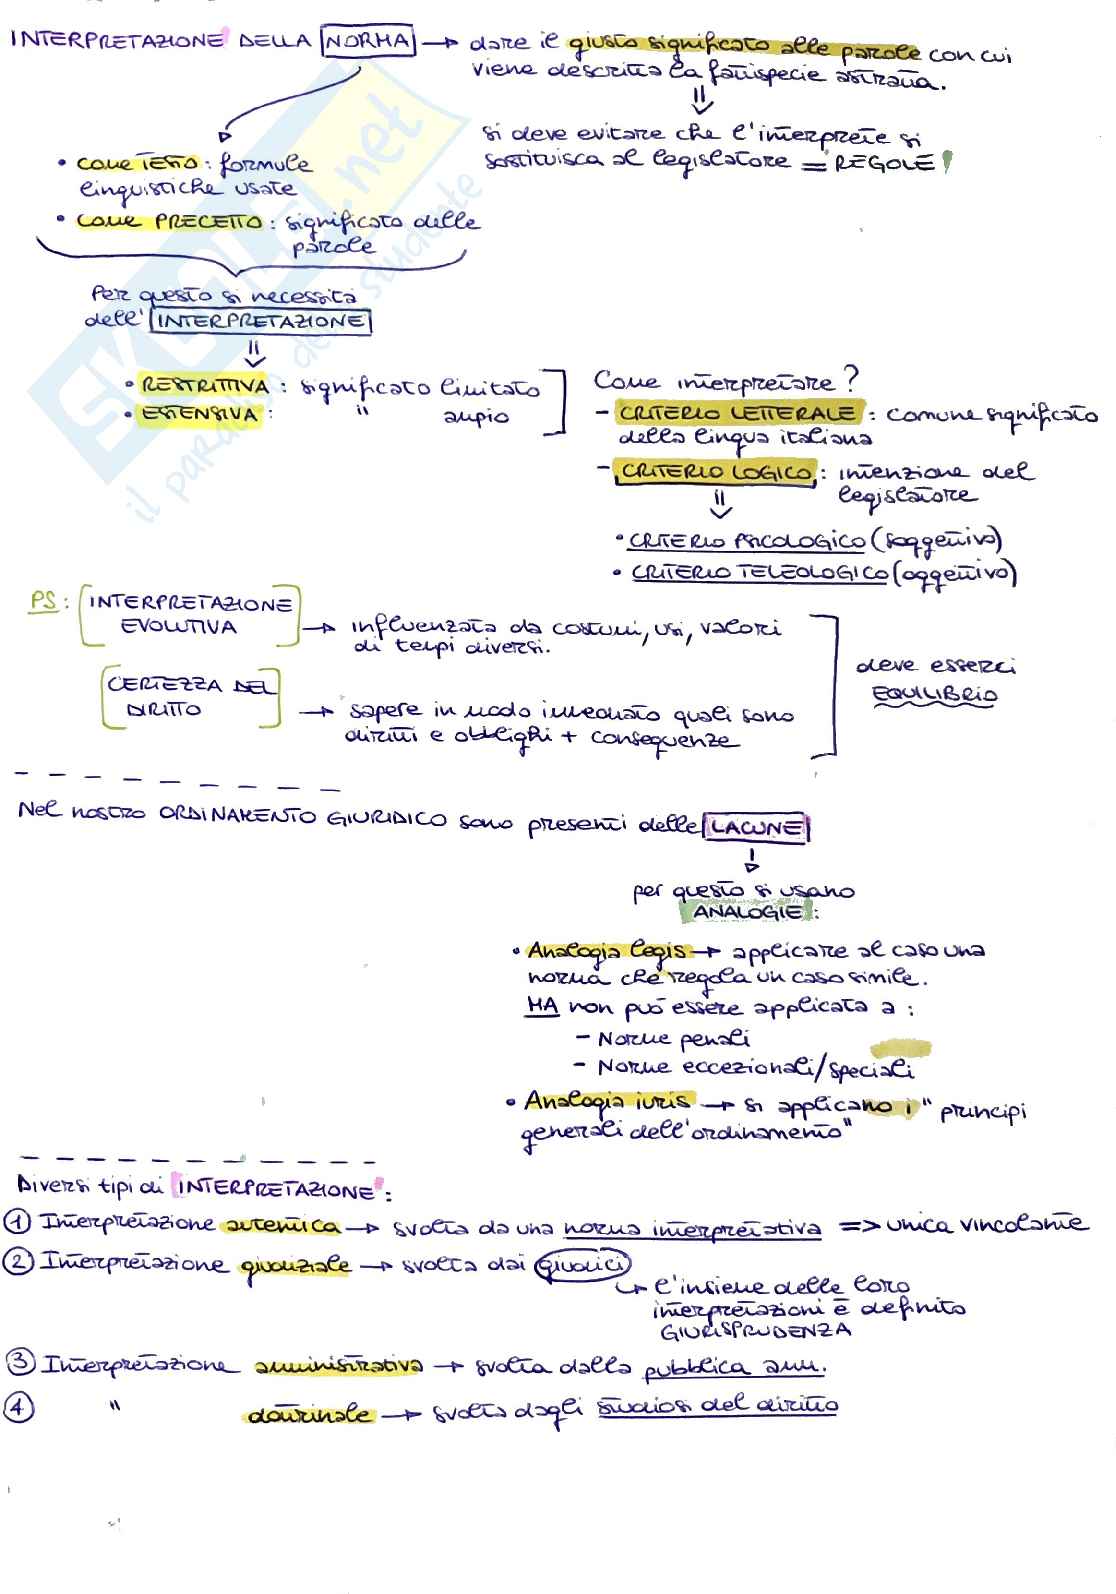 INTERPRETAZIONE DELLA NORMA → dare il giusto significato alle parole con cui
viene descritta la fattispecie astratta.
⇓
si deve evitare che l'interprete si
sostituisca al legislatore = REGOLE!
• COME TESTO: formule
linguistiche usate
• COME PRECETTO: significato delle
parole
Per questo si necessita
dell'INTERPRETAZIONE
⇓
• RESTRITTIVA: significato limitato
• ESTENSIVA: " ampio
Come interpretare?
- CRITERIO LETTERALE: comune significato
della lingua italiana
- CRITERIO LOGICO: intenzione del
legislatore
⇓
• CRITERIO PSICOLOGICO (soggettivo)
• CRITERIO TELEOLOGICO (oggettivo)
PS: INTERPRETAZIONE
EVOLUTIVA → influenzata da costumi, usi, valori
di tempi diversi.
CERTEZZA DEL
DIRITTO → sapere in modo immediato quali sono
diritti e obblighi + conseguenze
deve esserci
EQUILIBRIO
Nel nostro ORDINAMENTO GIURIDICO sono presenti delle LACUNE
per questo si usano
ANALOGIE:
• Analogia legis → applicare al caso una
norma che regola un caso simile.
MA non può essere applicata a:
- Norme penali
- Norme eccezionali/speciali
• Analogia iuris → si applicano i "principi
generali dell'ordinamento"
Diversi tipi di INTERPRETAZIONE:
① Interpretazione autentica → svolta da una norma interpretativa => unica vincolante
② Interpretazione giudiziale → svolta dai giudici
↳ l'insieme delle loro
interpretazioni è definito
GIURISPRUDENZA
③ Interpretazione amministrativa → svolta dalla pubblica amm.
④ " dottrinale → svolta dagli studiosi del diritto
SKUOLA.net
il paradiso dello studente